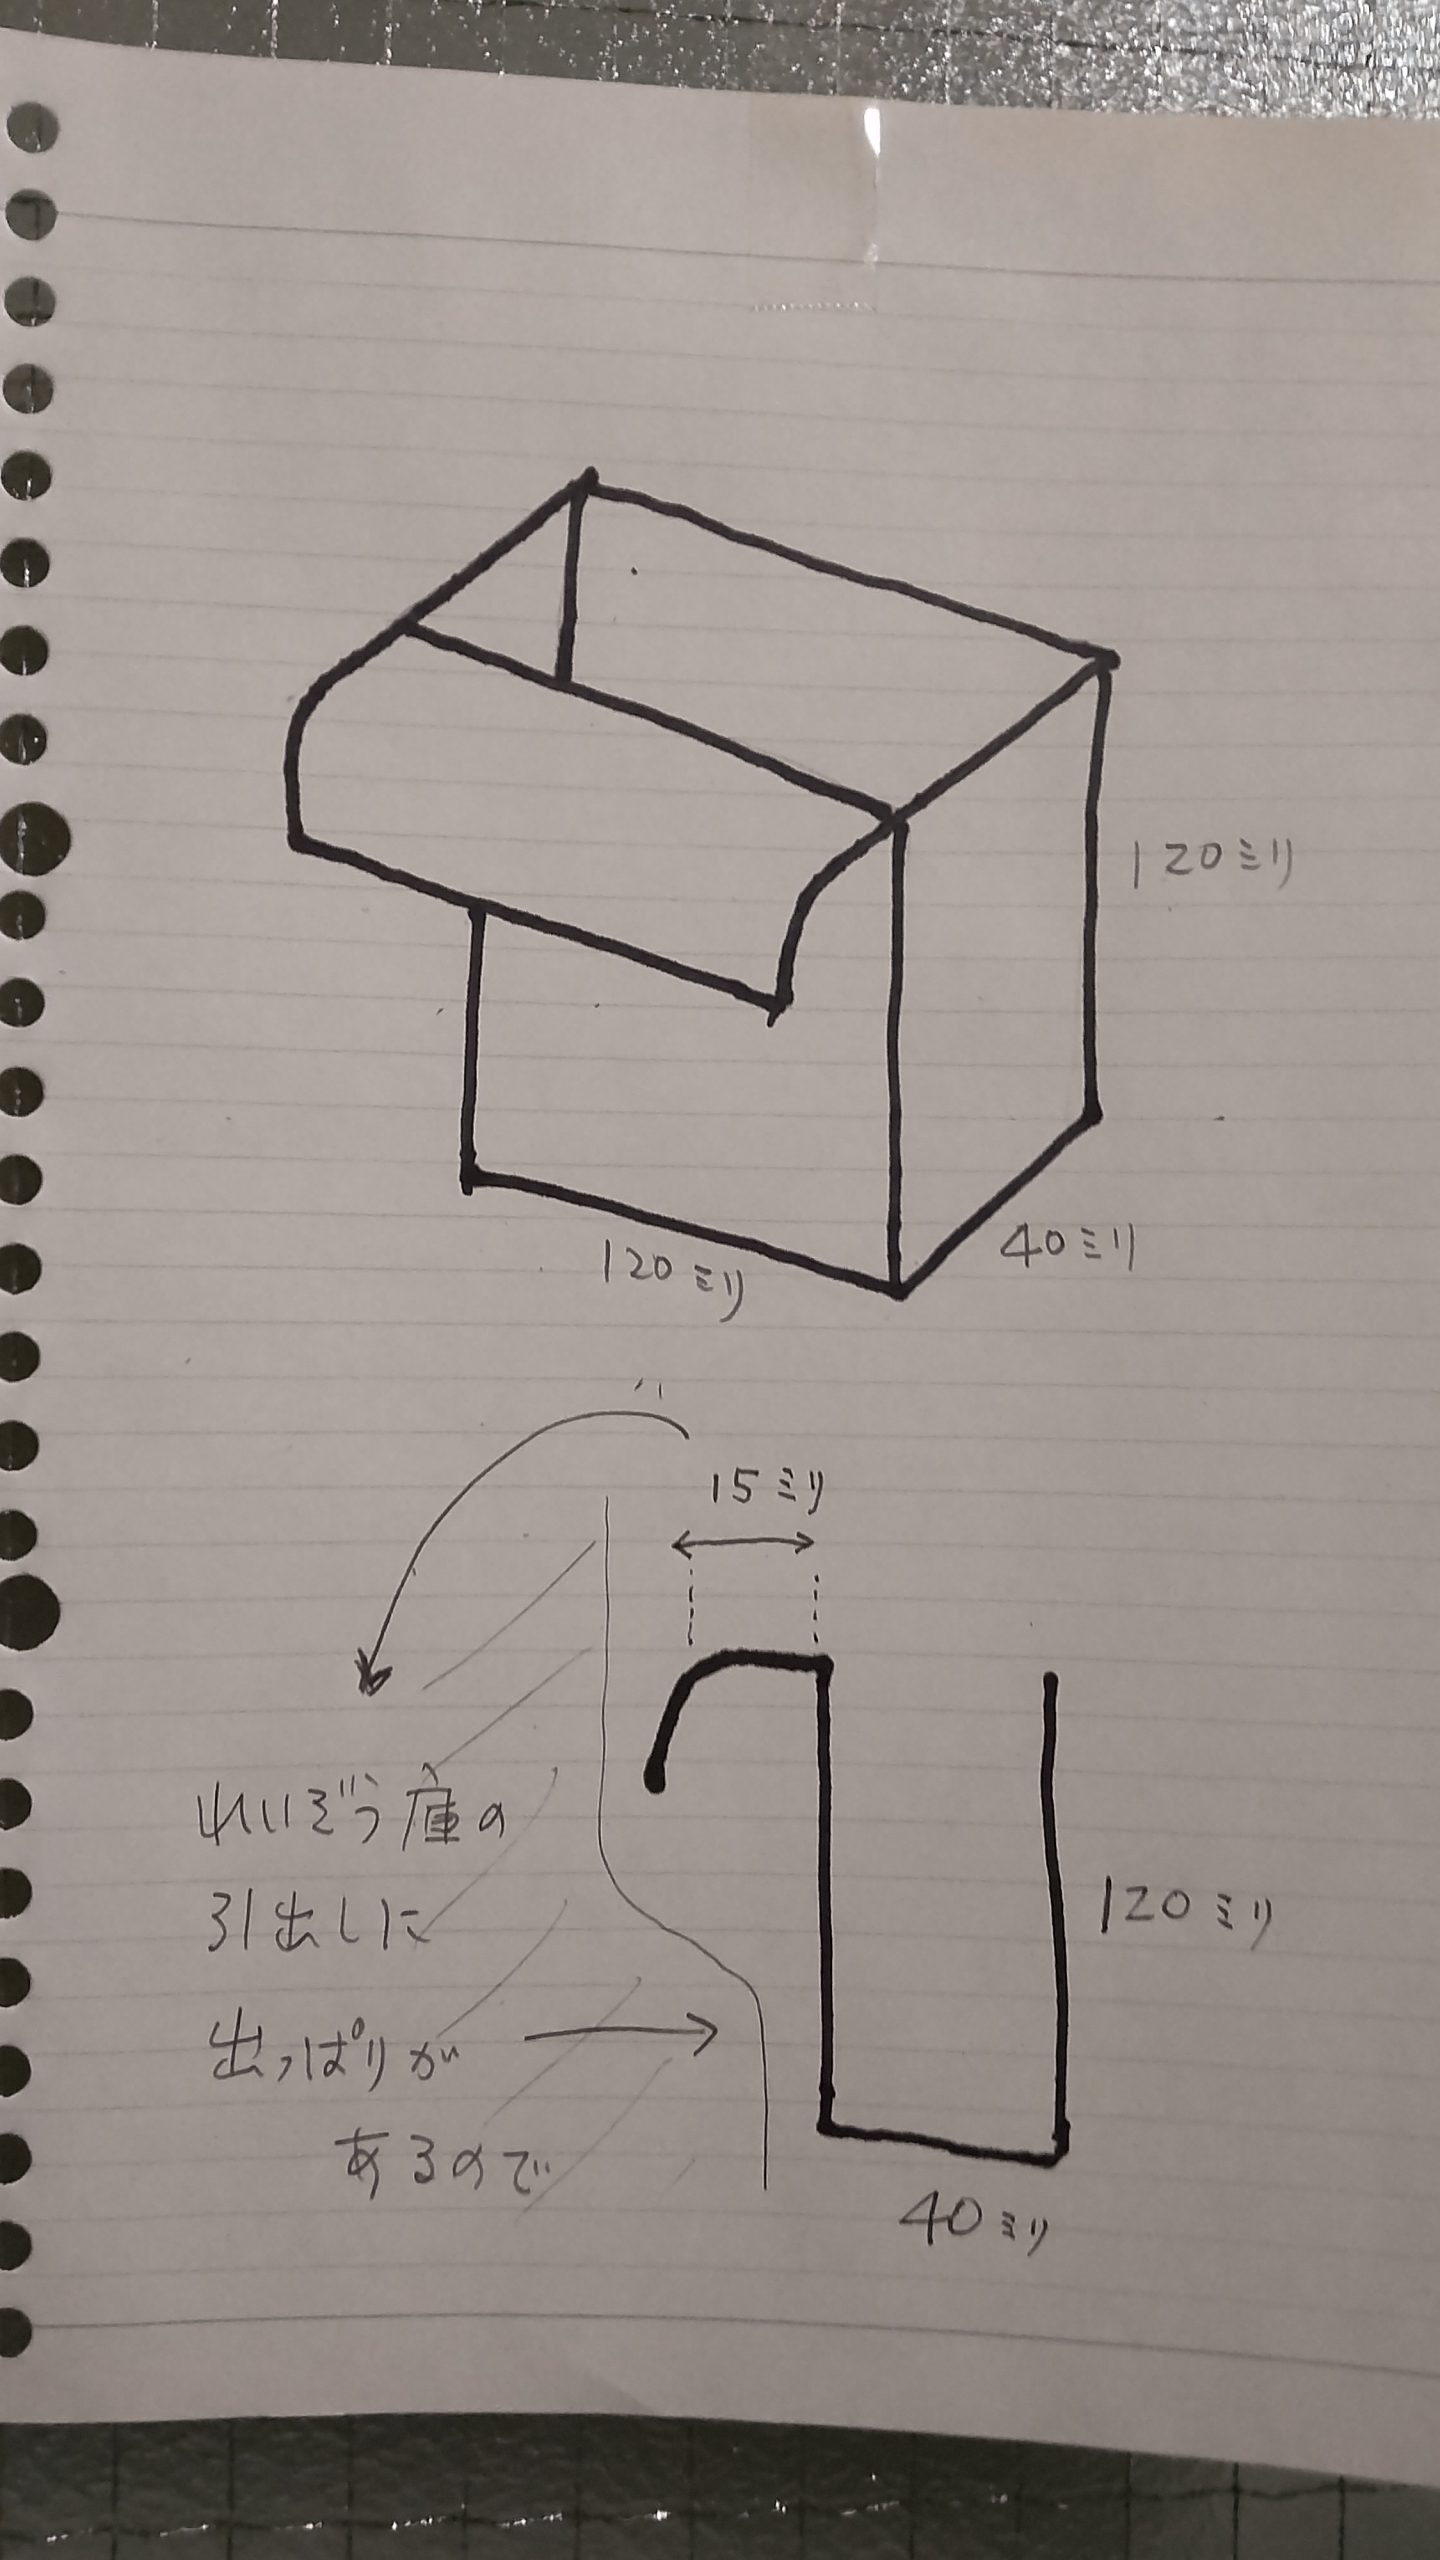 120ミリ
40ミリ
120ミリ
15ミリ
れいぞう庫の
引出しに
出っぱりが
あるので
120ミリ
40ミリ